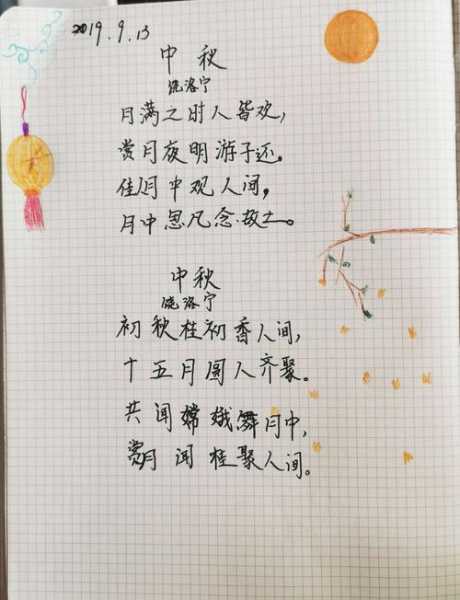 2019.9.13
中秋
饶洛宁
月满之时人皆欢，
赏月夜明游子还。
佳月中观人间，
月中思凡念故土。
中秋
饶洛宁
初秋桂初香人间，
十五月圆人齐聚。
共闻嫦娥舞月中，
赏月闻桂聚人间。